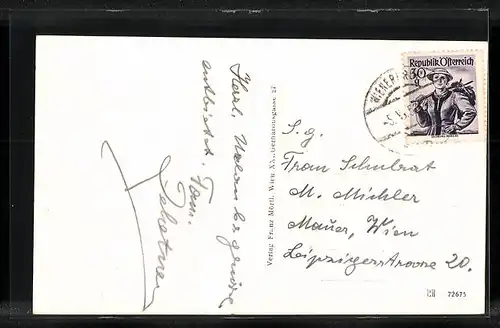 Herzl. Urlaubsgrüsse
entbietet Fam.
Verlag Franz Mörtl, Wien XX., Gerhardusgasse 27
Republik Österreich
30
g
WIENER
S. g.
Frau Schulrat
M. Michler
Mauer, Wien
Leipzigerstrasse 20.
72675